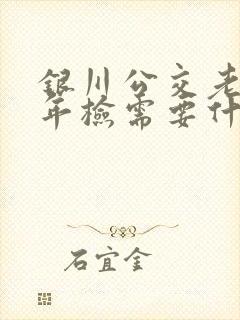 銀川公交老
年檢需要什
石宜金